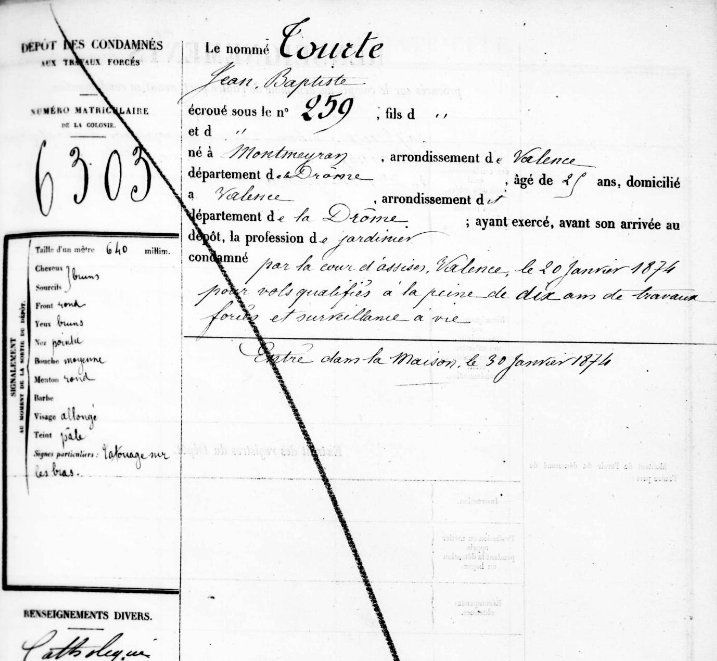 DÉPÔT DES CONDAMNÉS
AUX TRAVAUX FORCÉS
NUMÉRO MATRICULAIRE
DE LA COLONIE.
6303
SIGNALEMENT
AU MOMENT DE LA SORTIE DU DÉPÔT.
Taille d'un mètre 640 millim.
Cheveux
Sourcils } bruns
Front rond
Yeux bruns
Nez pointu
Bouche moyenne
Menton rond
Barbe
Visage allongé
Teint pâle
Signes particuliers : Tatouage sur
les bras.
RENSEIGNEMENTS DIVERS.
Catholique
Le nommé Tourte
Jean, Baptiste
écroué sous le n° 259 ; fils d "
et d "
né à Montmeyran, arrondissement de Valence
département de la Drôme ; âgé de 25 ans, domicilié
a Valence, arrondissement d
département de la Drôme ; ayant exercé, avant son arrivée au
dépôt, la profession de jardinier
condamné
par la cour d'assises, Valence, le 20 Janvier 1874
pour vols qualifiés à la peine de dix ans de travaux
forcés et surveillance à vie
Entré dans la Maison, le 30 Janvier 1874